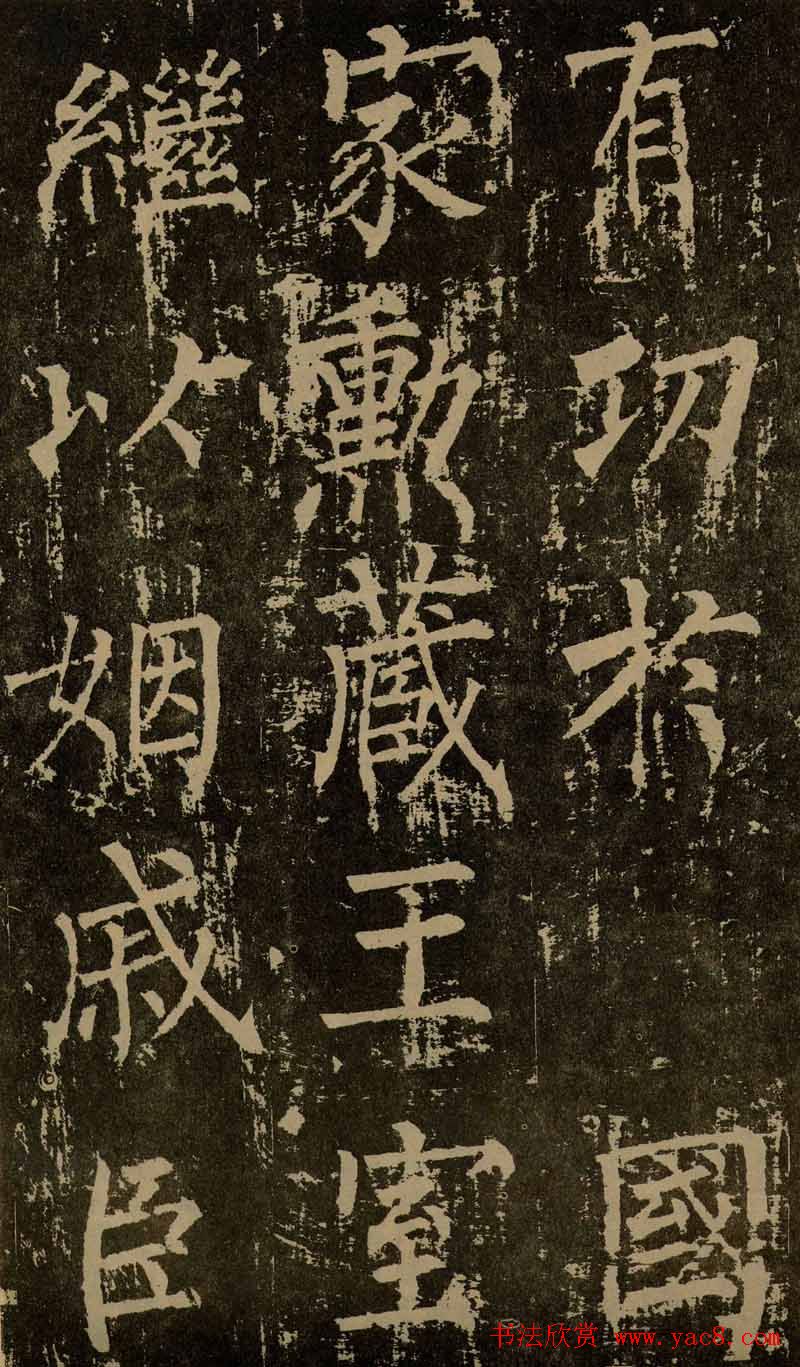 有功於 國
家勳藏王室
繼以姻戚臣
书法欣赏 www.yac8.com